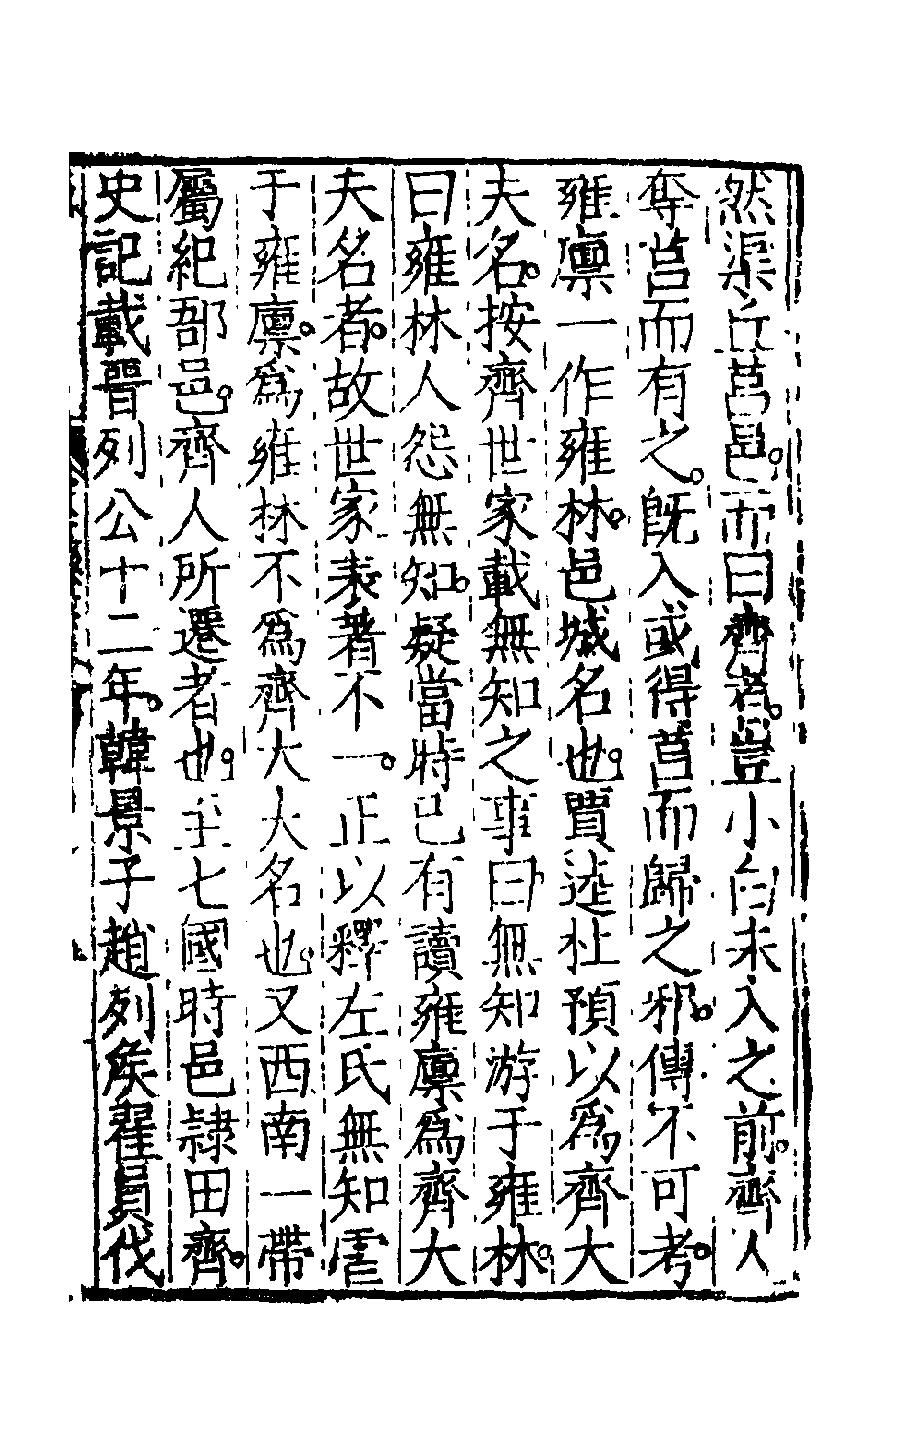 然渠丘莒邑。而曰齊者。豈小白未入之前。齊人
奪莒而有之。旣入或得莒而歸之邪。傳不可考。
雍廩一作雍林。邑城名也。賈逵杜預以爲齊大
夫名。按齊世家載無知之事曰無知游于雍林。
曰雍林人怨無知。疑當時已有讀雍廩爲齊大
夫名者。故世家表著不一。正以釋左氏無知虐
于雍廩。爲雍林不爲齊大夫名也。又西南一帶
屬紀郚邑。齊人所遷者也。至七國時邑隷田齊。
史記載晉列公十二年。韓景子趙列矦翟員伐